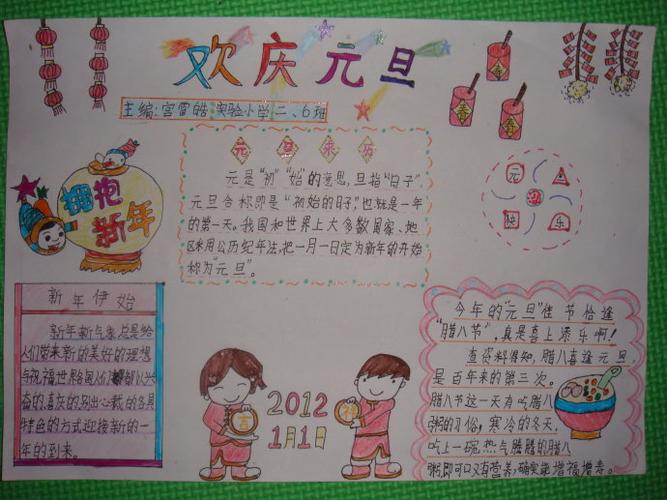 欢庆元旦
主编:宫雪皓 实验小学二、6班
春
春
元旦来历
元是"初""始"的意思,旦指"日子",
元旦合称即是"初始的日子",也就是一年
的第一天。我国和世界上大多数国家、地
区采用公历纪年法,把一月一日定为新年的开始
称为"元旦"。
元
旦
快
乐
拥抱
新年
新年伊始
新年新气象总是给
人们带来新的美好的理想
与祝福世界各国人们都以兴
奋的、喜庆的、别出心裁的各具
特色的方式迎接新的一
年的到来。
今年的"元旦"佳节恰逢
"腊八节",真是喜上添乐啊!
查资料得知,腊八喜逢元旦,
是百年来的第三次。
腊八节这一天有吃腊八
粥的习俗,寒冷的冬天,
吃上一碗热气腾腾的腊八
粥,即可口又有营养,确实能增福增寿。
吉
祥
2012
1月1日